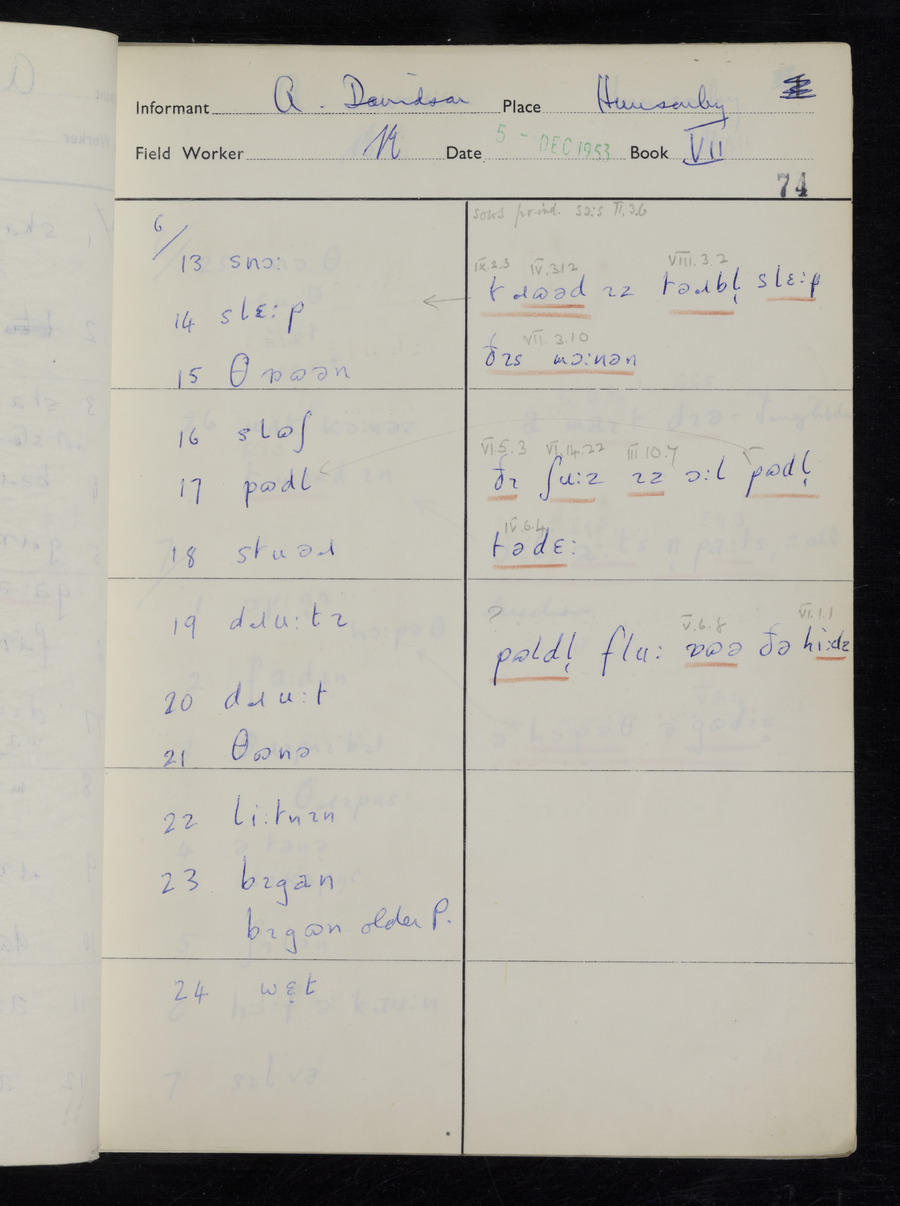 Informant A. Davidson Place Hunsonby
Field Worker Date 5 - DEC 1953 Book VII
74
6/
13 snɔː
14 slɛːp
15 θɒωən
16 slωʃ
17 pωdl
18 stuəɹ
19 dɹuːtɪ
20 dɹuːt
21 θωnə
22 liːtnɪn
23 bɪgan
bɪgωn older P.
24 wɛ̣t
IX.2.3 IV.3.12 VIII.3.2
tɹωəd ɪz təɹbl̩ slɛːp
VII.3.10
ðɪs mɔːnən
VI.5.3 VI.14.22 III.10.7
ðɪ ʃuːz ɪz ɔːl pωdl̩
IV.6.4
tədɛː
V.6.8 VI.1.1
pωldl̩ fluː ɒωə ðə hiːdz